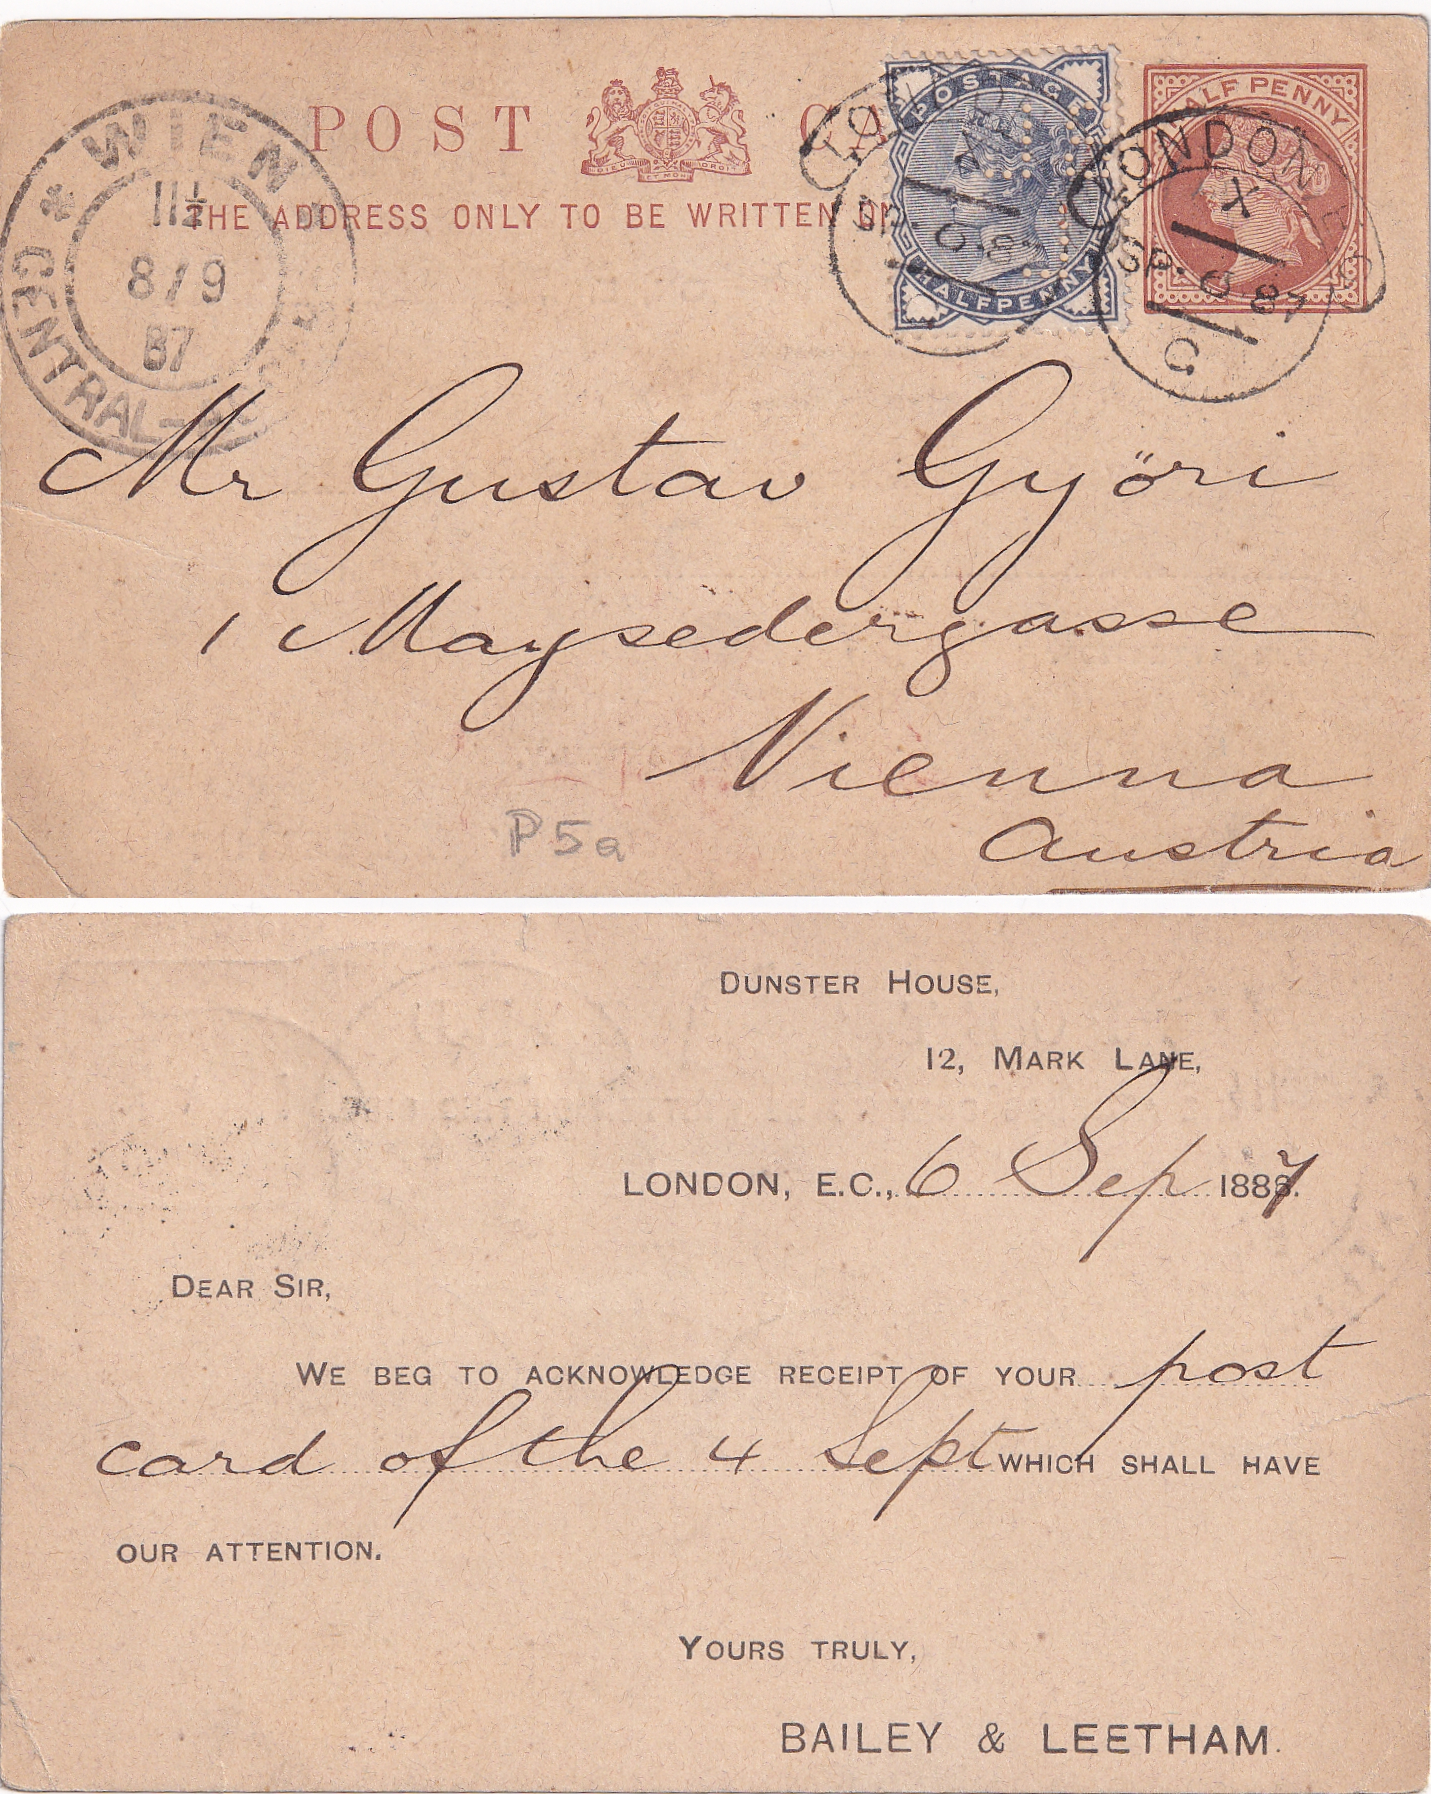 POST
THE ADDRESS ONLY TO BE WRITTEN
POSTAGE
HALFPENNY
HALF PENNY
LONDON
X
SP 6 87
C
WIEN
11½
8/9
87
CENTRAL-
Mr Gustav Györi
1 Maysedergasse
Vienna
Austria
P5a
DUNSTER HOUSE,
12, MARK LANE,
LONDON, E.C., 6 Sep 1887.
DEAR SIR,
WE BEG TO ACKNOWLEDGE RECEIPT OF YOUR post
card of the 4 Sept WHICH SHALL HAVE
OUR ATTENTION.
YOURS TRULY,
BAILEY & LEETHAM.